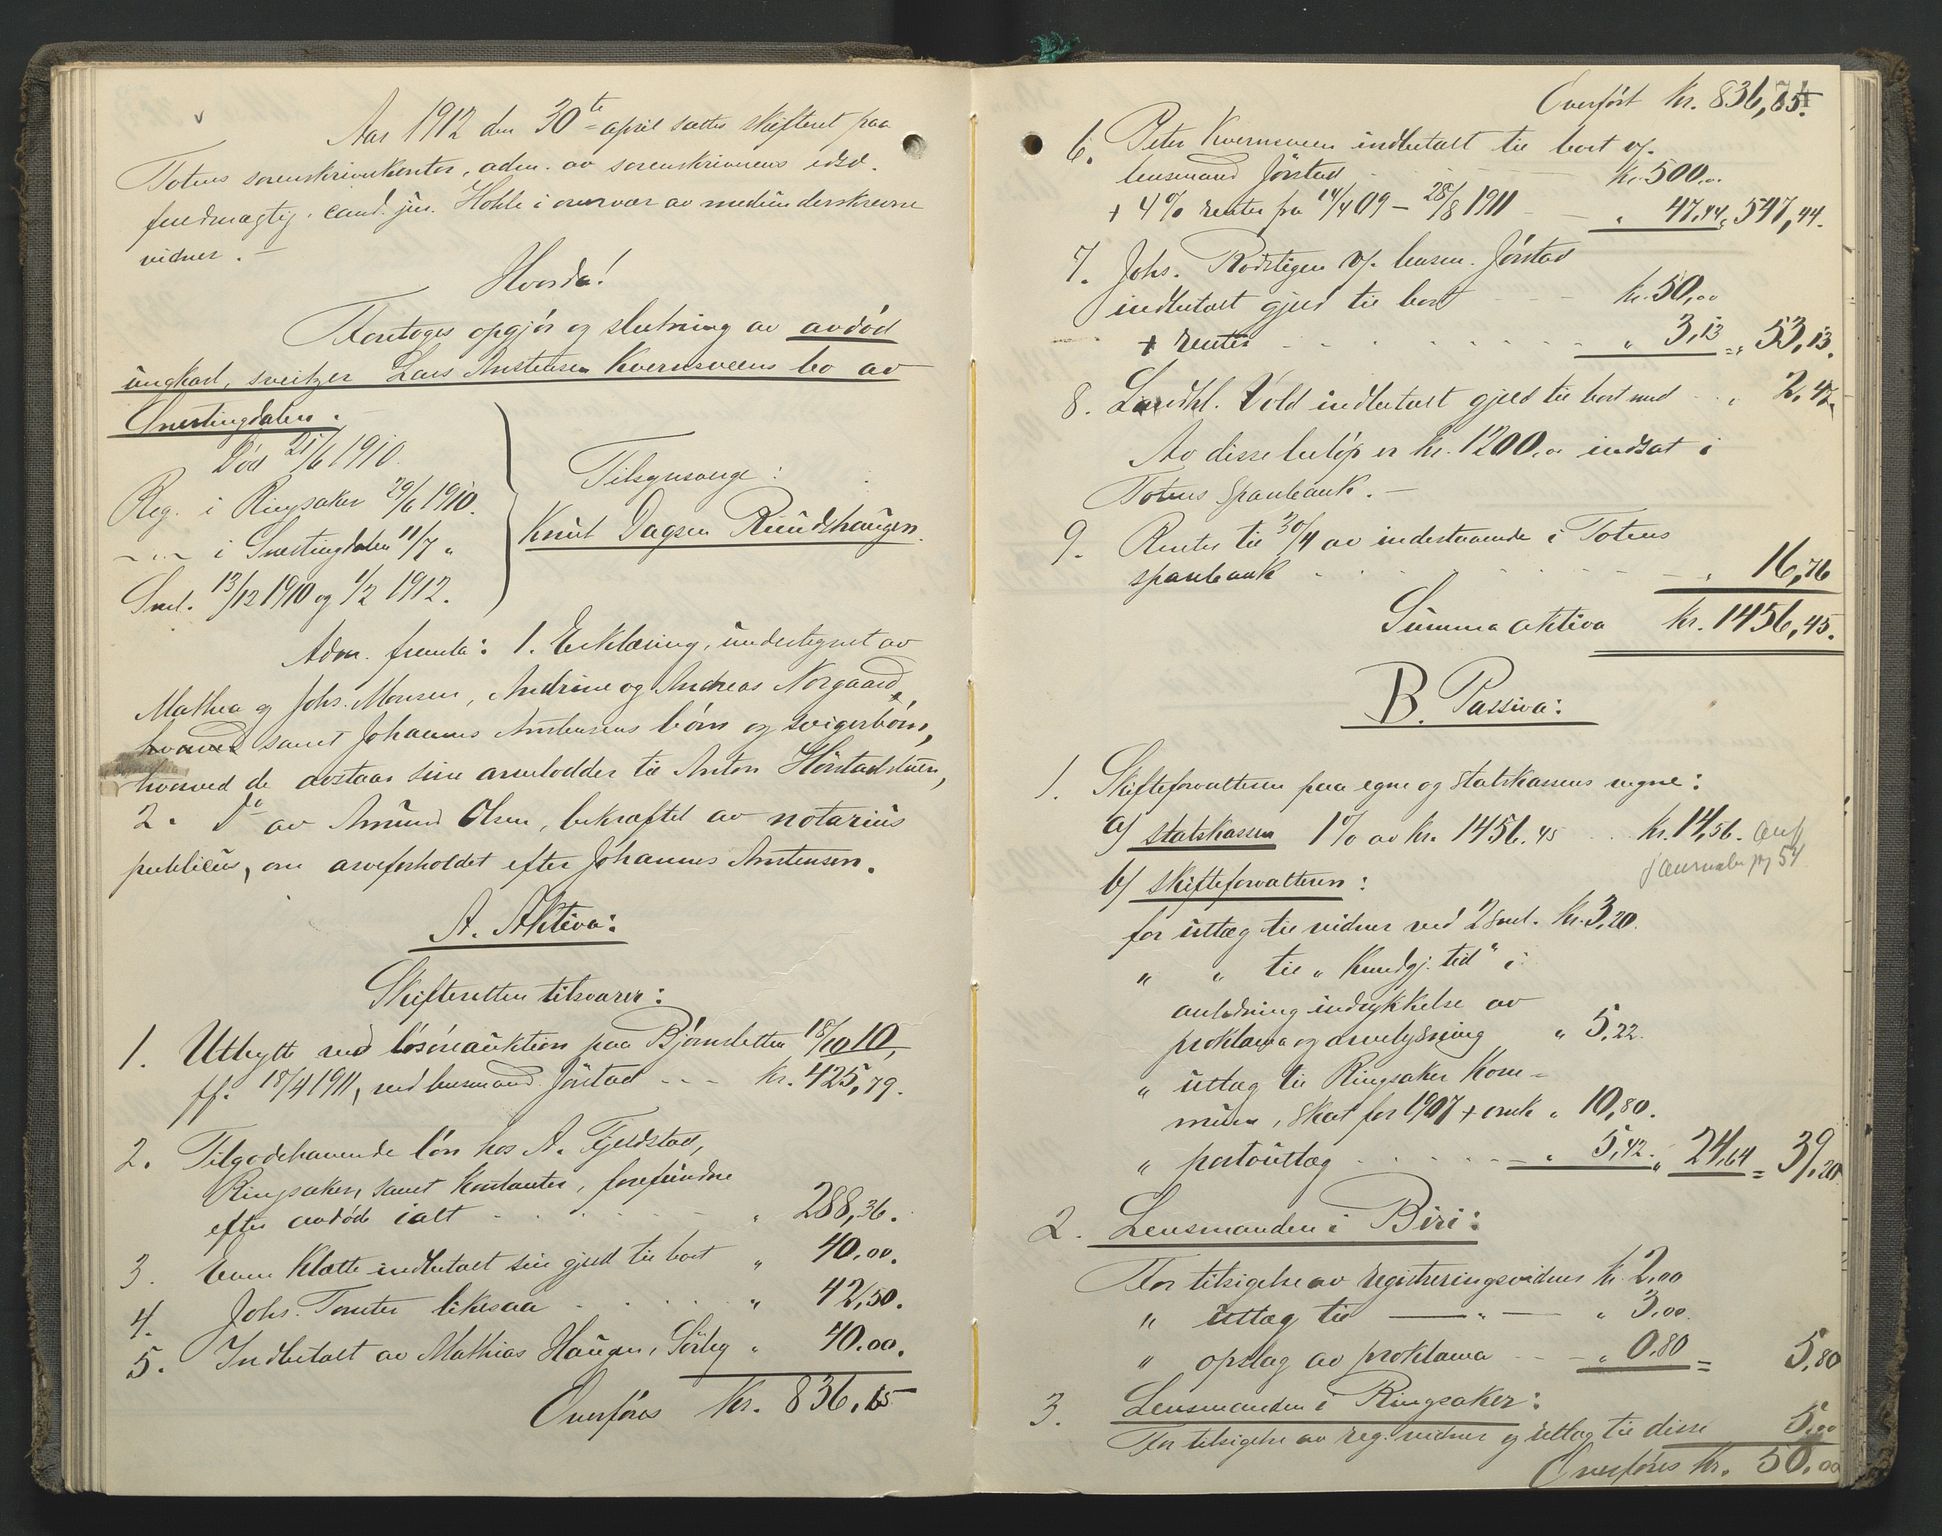 Aar 1912 den 30te april sattes skifteret paa
Totens sorenskriverkontor, adm. av sorenskriverens edsv.
fuldmægtig, cand. jur. Hohle i overvær av medunderskrevne
vidner. –
Hvorda!
Foretoges opgjør og slutning av avdød
ungkarl, sveitzer Lars Anstensen Kvernsveens bo av
Snertingdalen.
Død 21/6 1910.
Reg. i Ringsaker 29/6 1910.
– " – i Snertingdalen 11/7 "
Saml. 13/12 1910 og 1/2 1912.
Tilsynsverge:
Knut Dagsen Rundhaugen.
Adm. fremla: 1. Erklæring, undertegnet av
Mathea og Johs. Monsen, Andrine og Andreas Norgaard,
hvorved samt Johannes Anstensens børn og svigerbørn,
hvorved de avstaar sine arvelodder til Anton Hørstadstuen,
2. Do av Amund Olsen, bekræftet av notarius
publicus, om arveforholdet efter Johannes Anstensen.
A. Aktiva:
Skifteretten tilsvarer:
1. Utbytte ved løsøreauktion paa Bjørnsletten 18/10 10,
ff. 18/4 1911, ved lensmand Jørstad - - - kr. 425,79.
2. Tilgodehavende løn hos A. Fjeldstad,
Ringsaker, samt kontanter, forefundne
efter avdøde ialt . . . . . " 288,36.
3. Even Klætte indbetalt sin gjæld til boet " 40.00.
4. Johs. Tomter likesaa . . . . " 42,50.
5. Indbetalt av Mathias Haugen, Sörby " 40.00.
Overføres kr. 836.65
Overført kr. 836,65.
6. Peter Kvernsveen indbetalt til boet v/
lensmand Jørstad . . . kr. 500.00
+ 4% renter fra 14/4 09 – 28/8 1911 - - " 47.44 " 547,44.
7. Johs. Rødstigen v/ lensm. Jørstad
indbetalt gjæld til boet - - - kr. 50,00
+ renter . . . . . . . " 3,13 = " 53,13.
8. Landhl. Vold indbetalt gjæld til boet med - - " 2,47
Av disse beløp er kr. 1200,00 indsat i
Totens sparebank. –
9. Renter til 30/4 av indestaaende i Totens
sparebank . . . . . . " 16,76
Summa aktiva kr. 1456,45.
B. Passiva:
1. Skifteforvalteren paa egne og statskassens vegne:
a) statskassen 1% av kr. 1456.45 . . . kr. 14,56.
journalen pg 54.
b) skifteforvalteren:
for utlæg til vidner ved 2 saml. kr. 3,20.
" " til „Kundgj. tid“ i
anledning indrykkelse av
proklama og arvelysning " 5,22.
" utlæg til Ringsaker Kom-
mune, skat for 1907 + omk " 10,80.
" portoutlæg . . . . . " 5,42. " 24,64 = 39,20
2. Lensmanden i Biri:
For tilsigelse av registreringsvidner kr. 2,00
" utlæg til — " — " 3,00.
" opslag av proklama - - - " 0,80 = 5,80
3. Lensmanden i Ringsaker:
For tilsigelse av reg. vidner og utlæg til disse 5,00
Overføres kr. 50,00